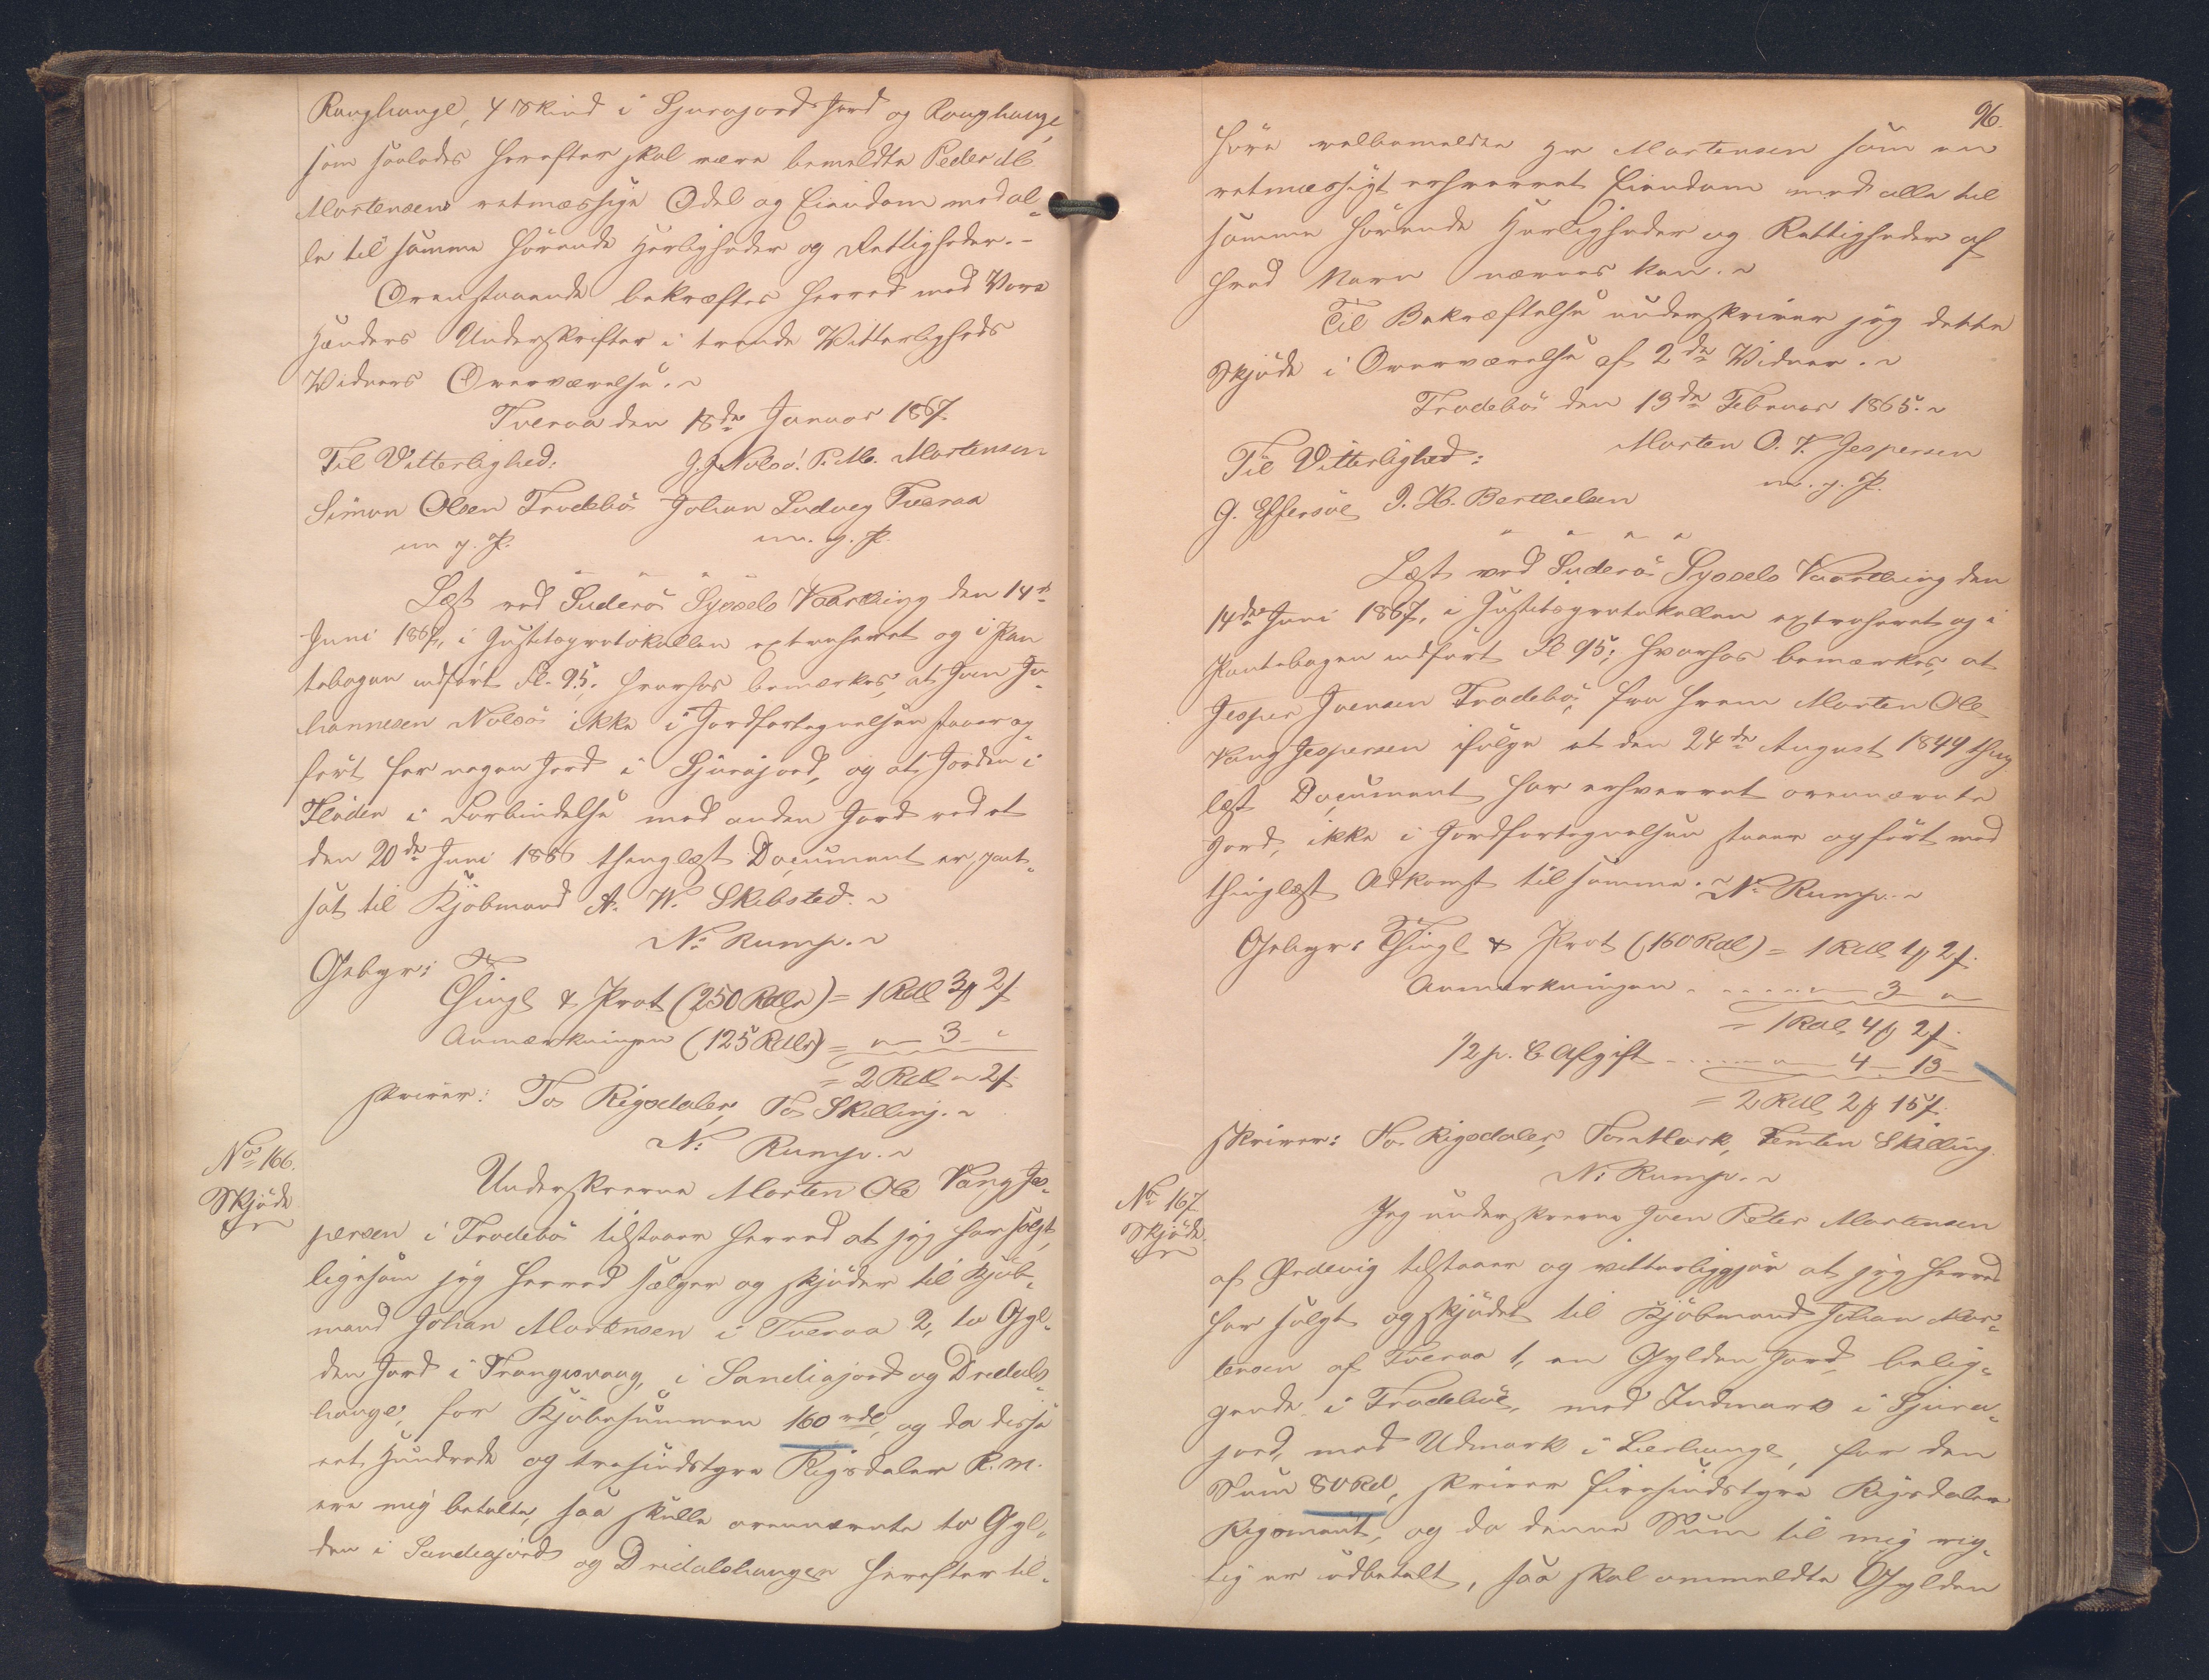 Ranghauge, 4 Skind i Sjurajords Jord og Ranghauge,
som saaledes herefter skal være bemeldte Peder M.
Mortensens retmæssige Odel og Eiendom med al-
le til samme hørende Herligheder og Rettigheder. -
Ovenstaaende bekræftes herved med Vore
Hænders Underskrifter i trende Vitterligheds
Vidners Overværelse. ~
Tveraa den 18de Januar 1867.
Til Vitterlighed: J. J. Nolsö. P. M. Mortensen
Simon Olsen Trodebö Johan Ludvig Tveraa
m. g. P. m. g. P.
Læst ved Suderö Syssels Vaarthing den 14d
Juni 1867, i Justitsprotokollen extraheret og i Pan
tebogen indført Fl. 95. hvorhos bemærkes, at Joen Jo-
hannesen Nolsö ikke i Jordfortegnelsen staaer op-
ført for nogen Jord i Sjurajord, og at Jorden i
Flöden i Forbindelse med anden Jord ved et
den 20de Juni 1866 thinglæst Document er pant-
sat til Kjøbmand A. W. Skibsted. ~
N. Rump. ~
Gebyr:
Thingl & Prot (250 Rdlr) = 1 Rdl 3 ₥ 2 ſ
Anmærkningen (125 Rdlr) = " 3 "
= 2 Rdl " 2 ſ
skriver: To Rigsdaler, To Skilling. ~
N. Rump. ~
No 166.
Skjöde
Underskrevne Morten Ole Vang Jes-
persen i Trodebö tilstaaer herved at jeg har solgt,
ligesom jeg herved sælger og skjøder til Kjøb-
mand Johan Mortensen i Tveraa 2, to Gyl-
den Jord i Trangisvaag, i Sandiajord og Dredals-
hauge, for Kjøbesummen 160 rdl, og da disse
eet Hundrede og tresindstyve Rigsdaler R. M.
ere mig betalte, saa skulle ovennævnte to Gyl-
den i Sandiajord og Dridalshaugen herefter til-
96.
høre velbemeldte Hr Mortensen som en
retmæssigt erhvervet Eiendom med alle til
samme hørende Herligheder og Rettigheder af
hvad Navn nævnes kan. ~
Til Bekræftelse underskriver jeg dette
Skjøde i Overværelse af 2de Vidner. ~
Trodebö den 13de Februar 1865. ~
Til Vitterlighed: Morten O. V. Jespersen
G. Effersöe J. H. Berthelsen m. g. P.
" " " "
Læst ved Suderö Syssels Vaarthing den
14de Juni 1867, i Justitsprotokollen extraheret og i
Pantebogen indført Fl 95; hvorhos bemærkes, at
Jesper Joensen Trodebö, fra hvem Morten Ole
Vang Jespersen ifølge et den 24de August 1849 thing
læst Document har erhvervet ovennævnte
Jord, ikke i Jordfortegnelsen staaer opført med
thinglæst Adkomst til samme. ~ N. Rump. ~
Gebyr: Thingl & Prot (160 Rdl) = 1 Rdl 1 ₥ 2 ſ
Anmærkningen " 3 "
= 1 Rdl 4 ₥ 2 ſ
1/2 p. C Afgift " 4 - 13 -
= 2 Rdl 2 ₥ 15 ſ
skriver: To Rigsdaler, To Mark, Femten Skilling.
N. Rump. ~
No 167
Skjöde.
Jeg underskrevne Joen Peter Mortensen
af Ördevig tilstaaer og vitterliggjør at jeg herved
har solgt og skjødet til Kjøbmand Johan Mor-
tensen af Tveraa 1, en Gylden Jord, belig-
gende i Trodebö, med Indmark i Sjura-
jord, med Udmark i Lierhauge, for den
Sum 80 Rd, skriver firesindstyve Rigsdaler
Rigsmønt, og da denne Sum til mig rig-
tig er udbetalt, saa skal ommeldte Gylden